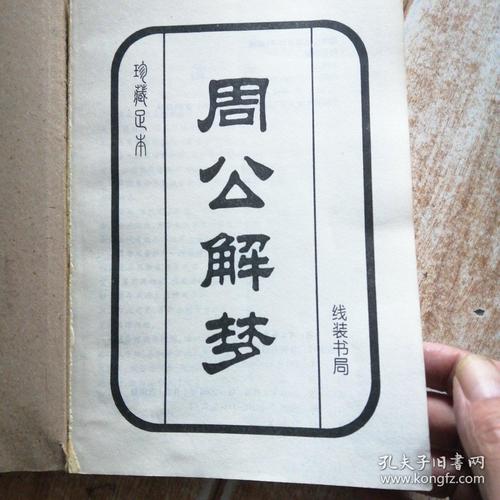 珍藏足本
周公解梦
线装书局
孔夫子旧书网
kongfz.com